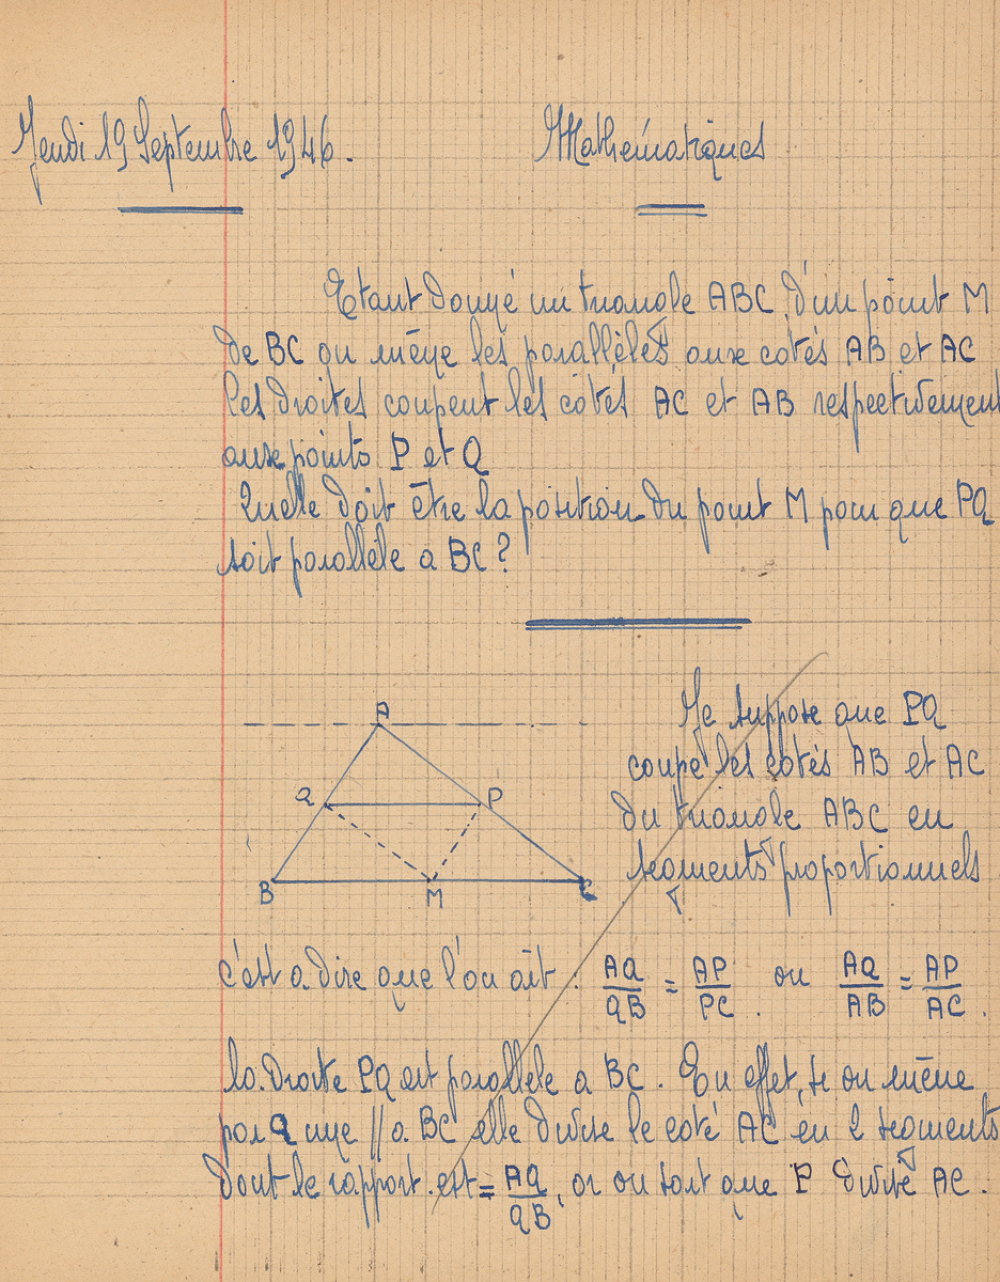 Jeudi 19 Septembre 1946. Mathématiques
Etant donné un triangle ABC, d'un point M
de BC on mène les parallèles aux cotés AB et AC
les droites coupent les côtés AC et AB respectivement
aux points P et Q
Quelle doit être la position du point M pour que PQ
soit parallèle a BC ?
A
Q P
B M C
Je suppose que PQ
coupe les cotés AB et AC
du triangle ABC en
segments proportionnels
c'est a dire que l'on ait : AQ/QB = AP/PC. ou AQ/AB = AP/AC.
la droite PQ est parallele a BC. En effet, si on mène
par Q une // a BC elle divise le coté AC en 2 segments
dont le rapport est = AQ/QB, or on sait que P divise AC.